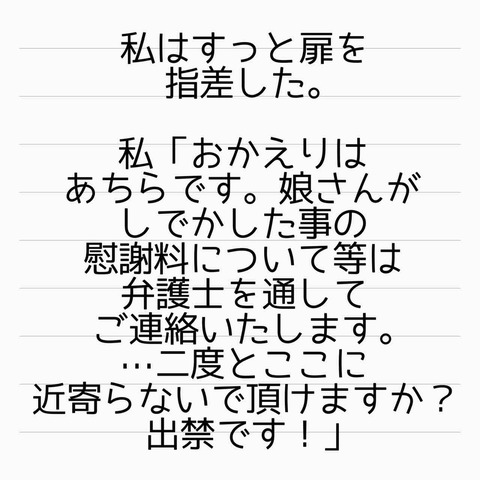 私はすっと扉を
指差した。
私「おかえりは
あちらです。娘さんが
しでかした事の
慰謝料について等は
弁護士を通して
ご連絡いたします。
…二度とここに
近寄らないで頂けますか？
出禁です！」